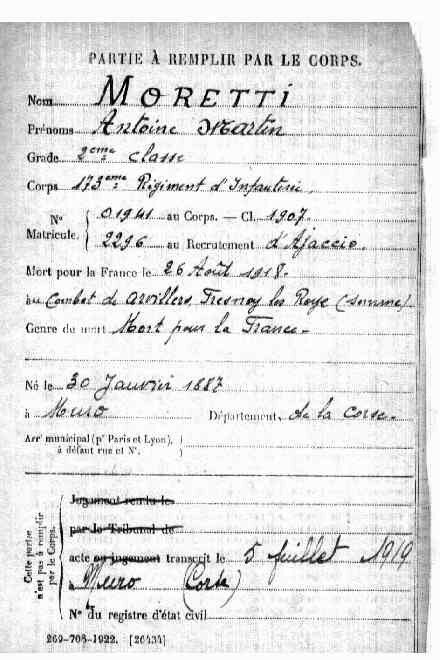 PARTIE À REMPLIR PAR LE CORPS.
Nom MORETTI
Prénoms Antoine Martin
Grade 2eme classe
Corps 173eme Régiment d'Infanterie
N° Matricule. { 01941 au Corps. — Cl. 1907.
2296 au Recrutement d'Ajaccio.
Mort pour la France le 26 Août 1918.
au Combat de Arvillers, Fresnoy les Roye (Somme)
Genre de mort Mort pour la France.
Né le 30 Janvier 1887
à Muro Département de la Corse.
Arr' municipal (p' Paris et Lyon),
à défaut rue et N°.
Cette partie n'est pas à remplir par le Corps.
Jugement rendu le
par le Tribunal de
acte ou jugement transcrit le 5 juillet 1919
à Muro (Corse)
N° du registre d'état civil
269-708-1922. [26434]